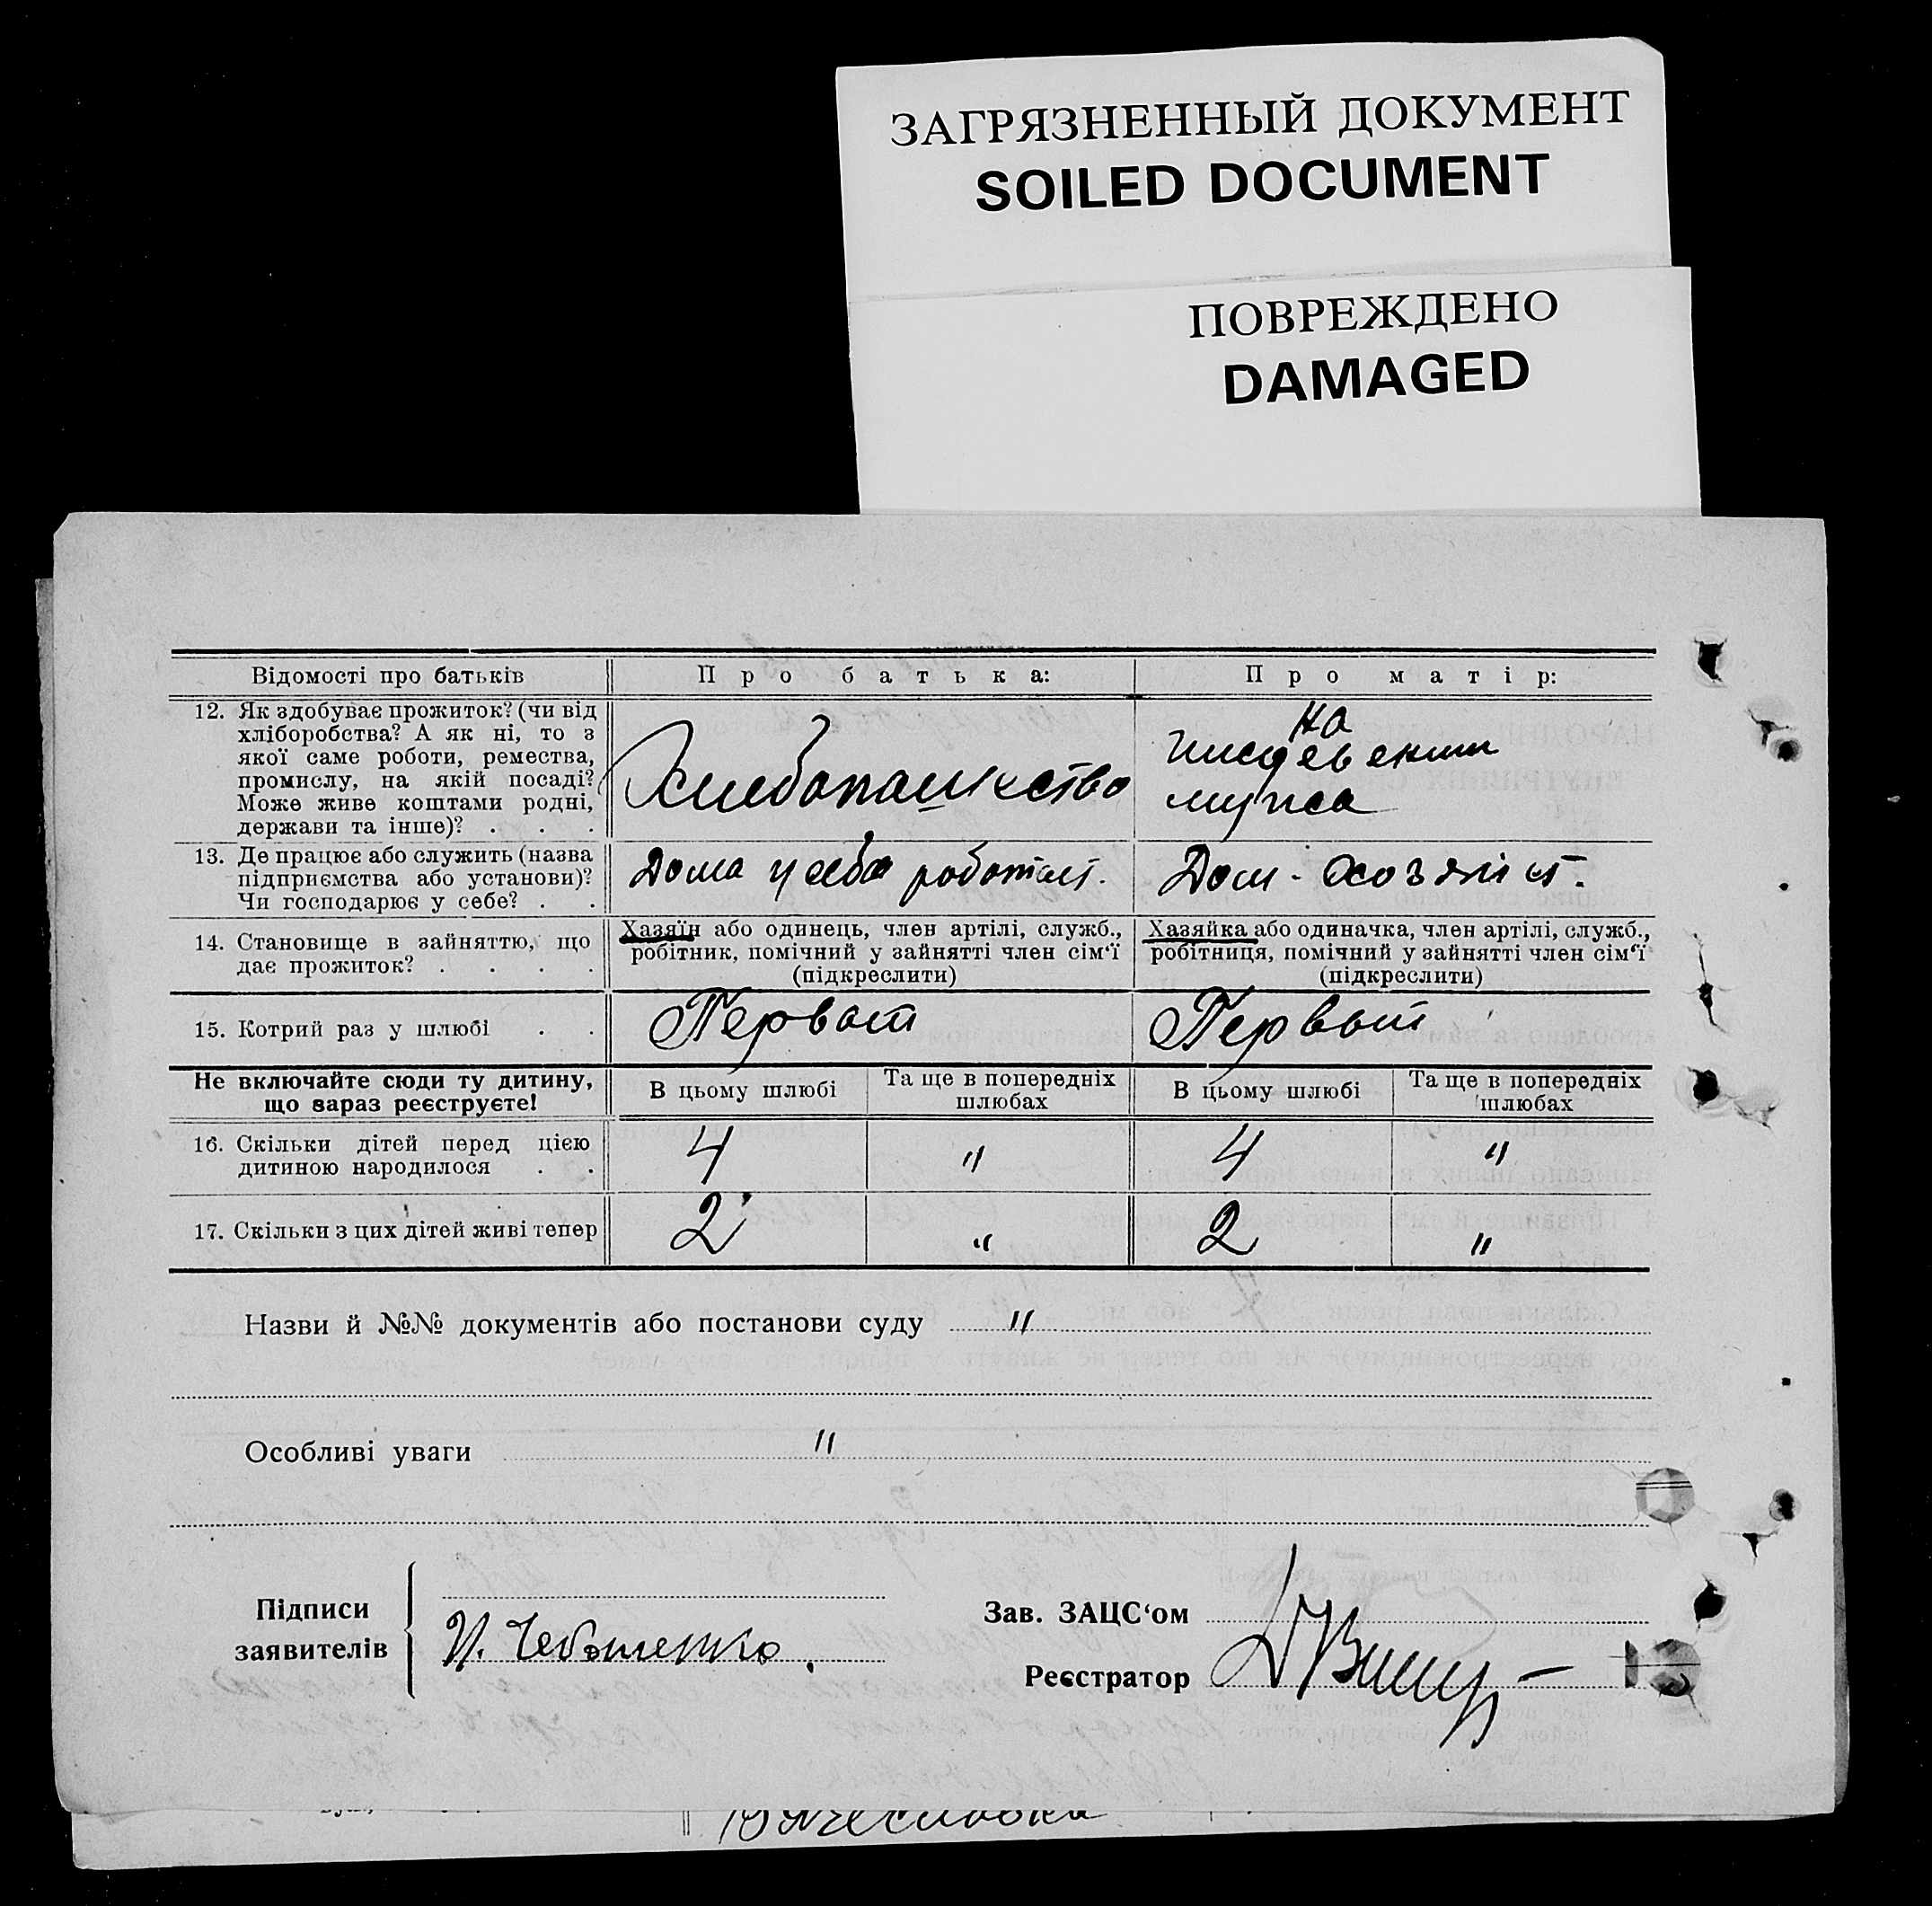 ЗАГРЯЗНЕННЫЙ ДОКУМЕНТ
SOILED DOCUMENT
ПОВРЕЖДЕНО
DAMAGED
Відомості про батьків
Про батька:
Про матір:
12. Як здобуває прожиток? (чи від
хліборобства? А як ні, то з
якої саме роботи, ремества,
промислу, на якій посаді?
Може живе коштами родні,
держави та інше)? . . .
Хлебопашество
на
иждевении
мужа
13. Де працює або служить (назва
підприємства або установи)?
Чи господарює у себе? . .
Дома у себя работает.
Дом. хозяйст.
14. Становище в зайняттю, що
дає прожиток? . . . .
Хазяїн або одинець, член артілі, служб.,
робітник, помічний у зайнятті член сім‘ї
(підкреслити)
Хазяйка або одиначка, член артілі, служб.,
робітниця, помічний у зайнятті член сім‘ї
(підкреслити)
15. Котрий раз у шлюбі . .
Первый
Первый
Не включайте сюди ту дитину,
що зараз реєструєте!
В цьому шлюбі
Та ще в попередніх
шлюбах
В цьому шлюбі
Та ще в попередніх
шлюбах
16. Скільки дітей перед цією
дитиною народилося . .
4 " 4 "
17. Скільки з цих дітей живі тепер
2 " 2 "
Назви й №№ документів або постанови суду "
Особливі уваги "
Підписи
заявителів
И.
Зав. ЗАЦС‘ом
Реєстратор